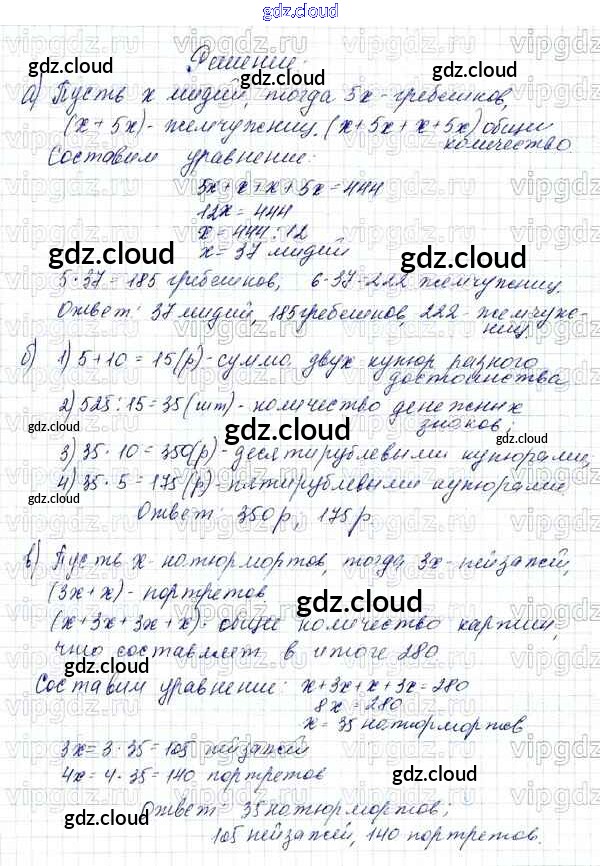 gdz.cloud
Решение:
а) Пусть x мидий, тогда 5x - гребешков,
(x + 5x) - жемчужниц, (x + 5x + x + 5x) общее
количество.
Составим уравнение:
5x + x + x + 5x = 444
12x = 444
x = 444 : 12
x = 37 мидий
5 · 37 = 185 гребешков, 6 · 37 = 222 жемчужниц.
Ответ: 37 мидий, 185 гребешков, 222 - жемчужниц.
б) 1) 5 + 10 = 15 (р) - сумма двух купюр разного
достоинства
2) 525 : 15 = 35 (шт) - количество денежных
знаков;
3) 35 · 10 = 350 (р) - десятирублевыми купюрами;
4) 35 · 5 = 175 (р) - пятирублевыми купюрами.
Ответ: 350 р, 175 р.
в) Пусть x - натюрмортов, тогда 3x - пейзажей,
(3x + x) - портретов
(x + 3x + 3x + x) - общее количество картин,
что составляет в итоге 280
Составим уравнение: x + 3x + x + 3x = 280
8x = 280
x = 35 натюрмортов
3x = 3 · 35 = 105 пейзажей
4x = 4 · 35 = 140 портретов
Ответ: 35 натюрмортов;
105 пейзажей, 140 портретов.